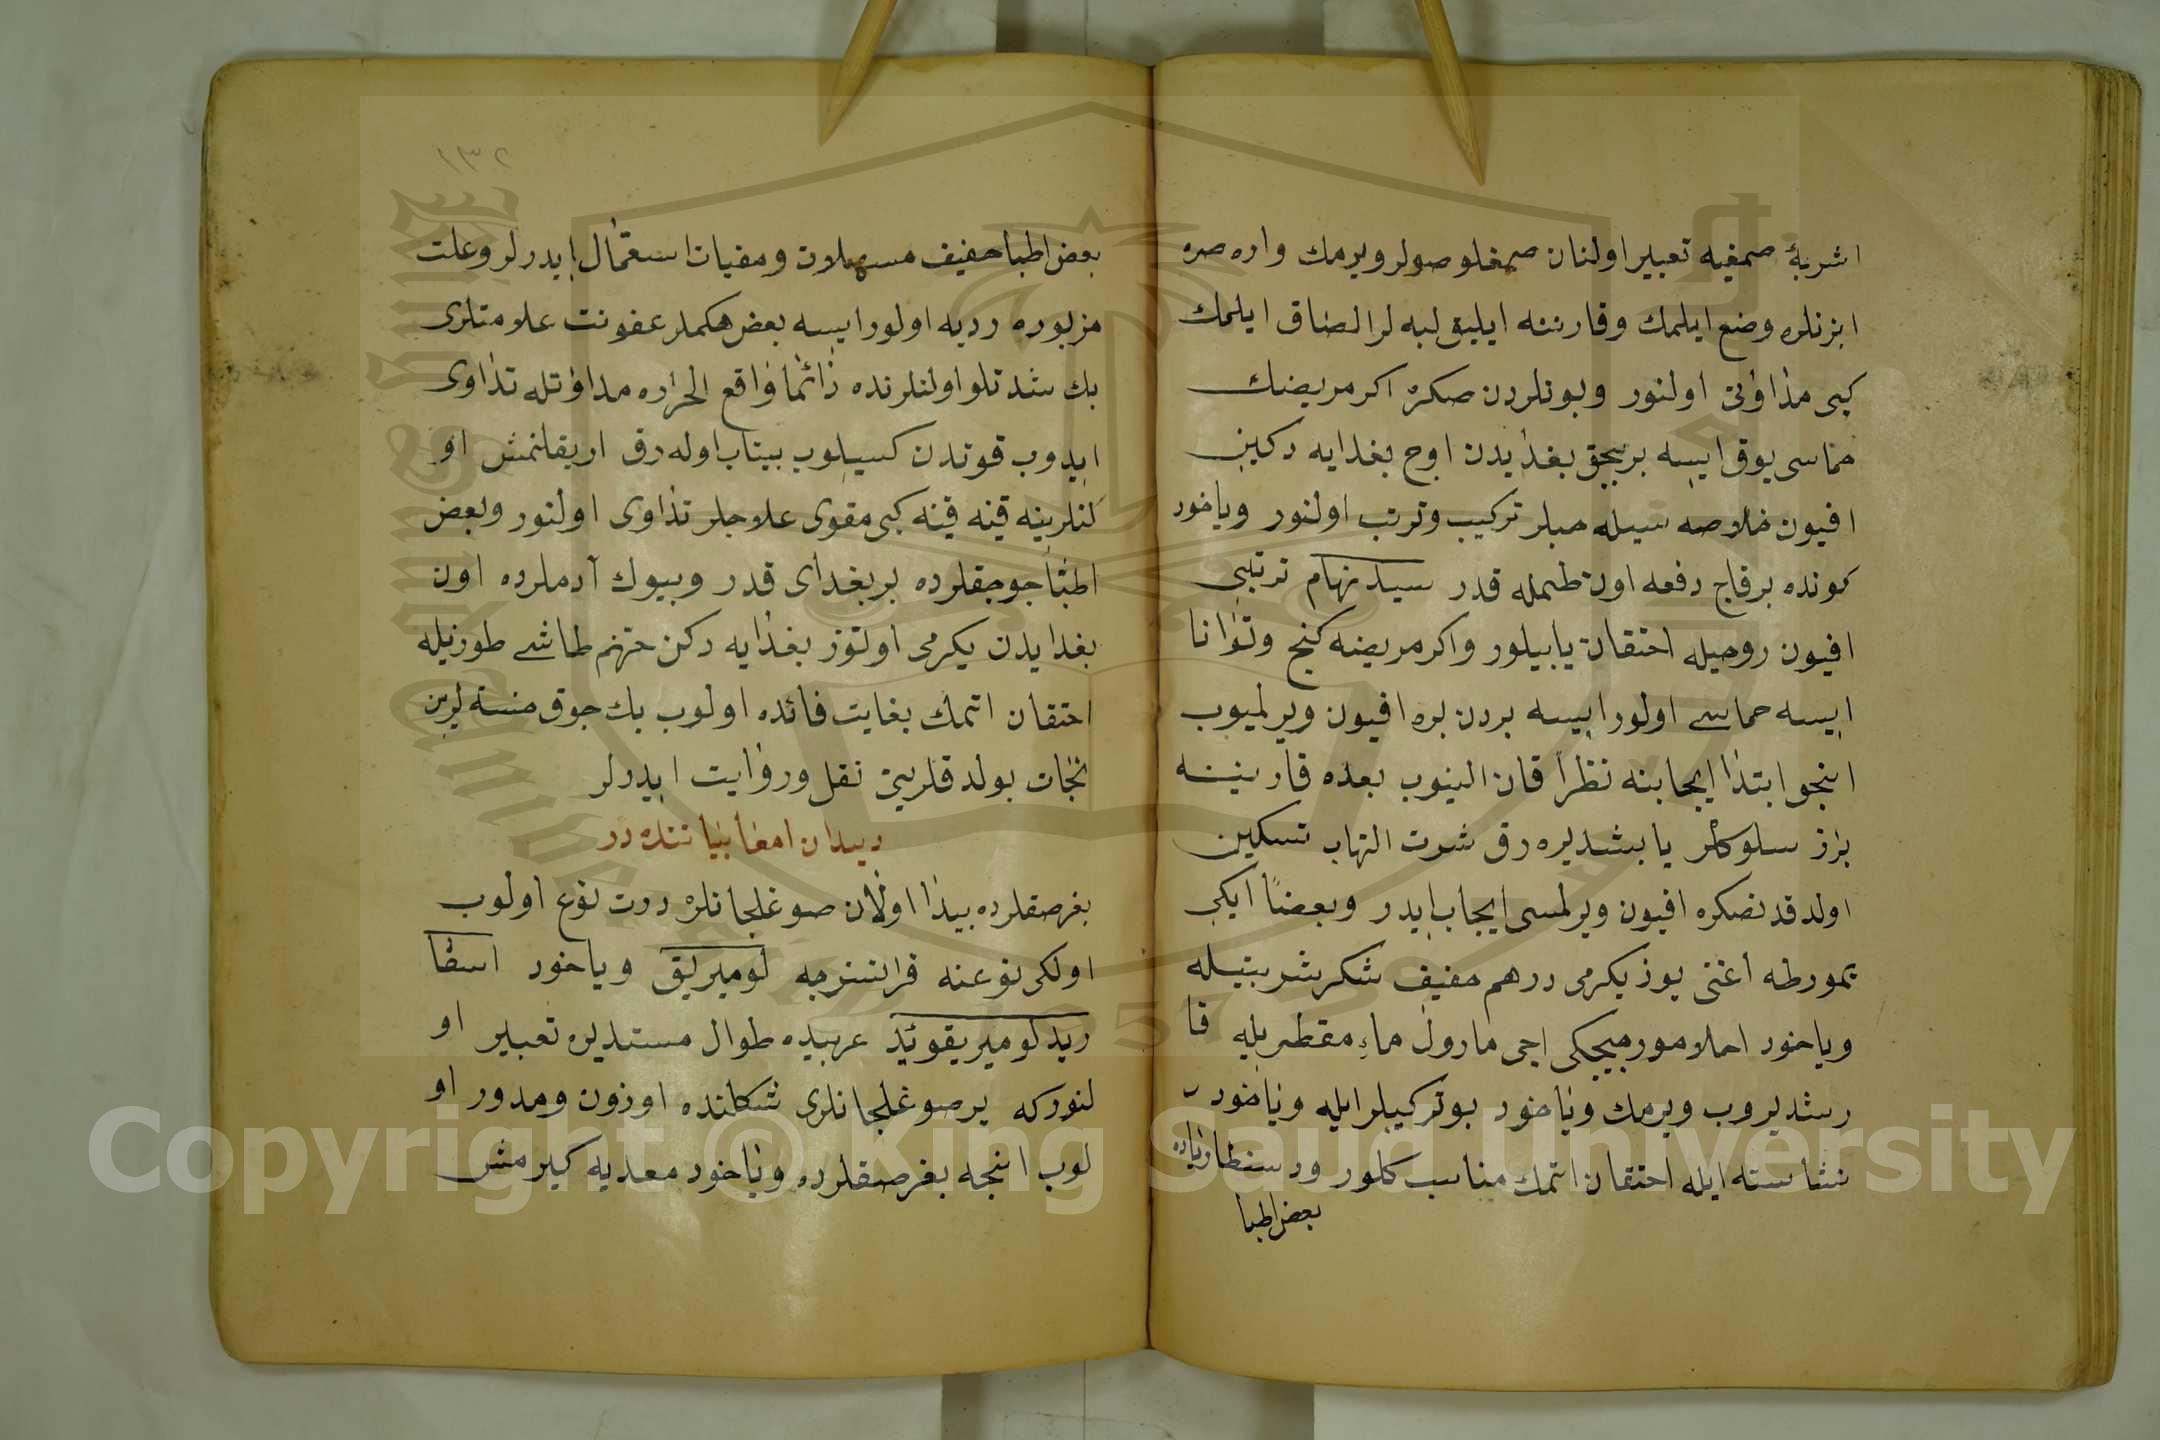 اشربهٔ صمغیه تعبیر اولنان صمغلو صولر ویرمك واره صره
ابزنلره وضع ایلمك وقارننه ایلیق لبه لر الصاق ایلمك
کبی مداواتی اولنور وبونلردن صکره اکر مریضك
حماسی یوق ایسه بربجق بغدایدن اوج بغدایه دکین
افیون خلاصه سیله حبلر ترکیب وترتب اولنور ویاخود
کونده برقاج دفعه اون طمله قدر سیدنهام ترتیبی
افیون روحیله احتقان یاپیلور واکر مریضه کنج وتوانا
ایسه حماسی اولور ایسه بردن بره افیون ویرلمیوب
انجو ابتدا ایجابنه نظراً قان النیوب بعده قارنینه
بزز سلوکلر یابشدیره رق شرت التهاب تسکین
اولدقدنصکره افیون ویرلمسی ایجاب ایدر وبعضاً ایکی
یمورطه اغنی یوز یکرمی درهم خفیف شکر شربتیله
ویاخود اخلامور چیچکی اجی مارول ماءِ مقطریله قا
رشدیروب ویرمك ویاخود بوترکیبلر ایله ویاخود
نشاسته ایله احتقان اتمك مناسب کلور ودسنطاریاده
بعض اطبا
١٣٢
بعض اطبا خفیف مسهلات ومقیات استعمال ایدرلر وعلت
مزبوره ردیه اولور ایسه بعض حکملر عفونت علامتلری
بك شدتلو اولنلرنده دائما واقع الحراره مداوتله تداوی
ایدوب قوتدن کسیلوب بیتاب اوله رق اریقلنمش او
لنلرینه قینه قینه کبی مقوی علاجلر تداوی اولنور وبعض
اطبا جوجقلرده بر بغدای قدر وبیوك آدملرده اون
بغدایدن یکرمی اوتوز بغدایه دکن جهنم طاشی طوزیله
احتقان اتمك بغایت فائده اولوب بك جوق خسته لرین
نجات بولدقلرینی نقل وروایت ایدرلر
دیدان امعا بیاننده در
بغرصقلرده پیدا اولان صوغلجانلر درت نوع اولوب
اولکی نوعنه فرانسزجه لومبریق ویاخود اسقا
ریدلومبریقوئید عربیده طوال مستدیره تعبیر او
لنورکه یر صوغلجانلری شکلنده اوزون ومدور او
لوب انجه بغرصقلرده ویاخود معدیه کیرمش